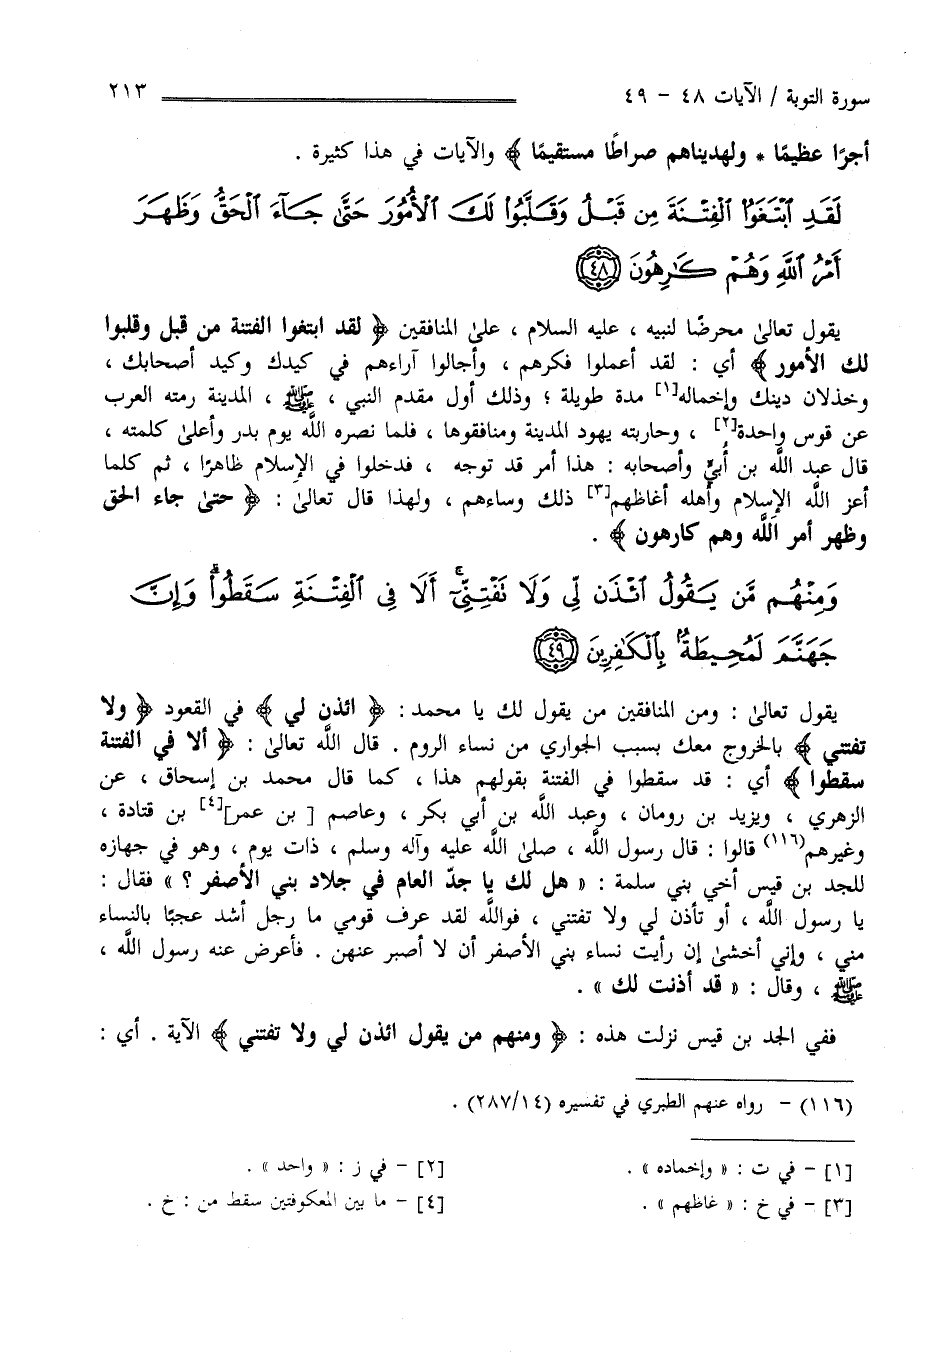 سورة التوبة / الآيات ٤٨ - ٤٩ ٢١٣
أجرًا عظيمًا * ولهديناهم صراطًا مستقيمًا ﴾ والآيات في هذا كثيرة .
لَقَدِ ٱبْتَغَوُا۟ ٱلْفِتْنَةَ مِن قَبْلُ وَقَلَّبُوا۟ لَكَ ٱلْأُمُورَ حَتَّىٰ جَآءَ ٱلْحَقُّ وَظَهَرَ
أَمْرُ ٱللَّهِ وَهُمْ كَـٰرِهُونَ ﴿٤٨﴾
يقول تعالىٰ محرضًا لنبيه ، عليه السلام ، علىٰ المنافقين ﴿ لقد ابتغوا الفتنة من قبل وقلبوا
لك الأمور ﴾ أي : لقد أعملوا فكرهم ، وأجالوا آراءهم في كيدك وكيد أصحابك ،
وخذلان دينك وإخماله[١] مدة طويلة ؛ وذلك أول مقدم النبي ، ﷺ ، المدينة رمته العرب
عن قوس واحدة[٢] ، وحاربته يهود المدينة ومنافقوها ، فلما نصره اللَّه يوم بدر وأعلىٰ كلمته ،
قال عبد اللَّه بن أُبيٍّ وأصحابه : هذا أمر قد توجه ، فدخلوا في الإسلام ظاهرًا ، ثم كلما
أعز اللَّه الإسلام وأهله أغاظهم[٣] ذلك وساءهم ، ولهذا قال تعالىٰ : ﴿ حتىٰ جاء الحق
وظهر أمر اللَّه وهم كارهون ﴾ .
وَمِنْهُم مَّن يَقُولُ ٱئْذَن لِّى وَلَا تَفْتِنِّىٓ ۚ أَلَا فِى ٱلْفِتْنَةِ سَقَطُوا۟ ۗ وَإِنَّ
جَهَنَّمَ لَمُحِيطَةٌۢ بِٱلْكَـٰفِرِينَ ﴿٤٩﴾
يقول تعالىٰ : ومن المنافقين من يقول لك يا محمد : ﴿ ائذن لي ﴾ في القعود ﴿ ولا
تفتني ﴾ بالخروج معك بسبب الجواري من نساء الروم . قال اللَّه تعالىٰ : ﴿ ألا في الفتنة
سقطوا ﴾ أي : قد سقطوا في الفتنة بقولهم هذا ، كما قال محمد بن إسحاق ، عن
الزهري ، ويزيد بن رومان ، وعبد اللَّه بن أبي بكر ، وعاصم [ بن عمر][٤] بن قتادة ،
وغيرهم(١١٦) قالوا : قال رسول اللَّه ، صلىٰ اللَّه عليه وآله وسلم ، ذات يوم ، وهو في جهازه
للجد بن قيس أخي بني سلمة : « هل لك يا جدّ العام في جلاد بني الأصفر ؟ » فقال :
يا رسول اللَّه ، أو تأذن لي ولا تفتني ، فواللَّه لقد عرف قومي ما رجل أشد عجبًا بالنساء
مني ، وإني أخشىٰ إن رأيت نساء بني الأصفر أن لا أصبر عنهن . فأعرض عنه رسول اللَّه ،
ﷺ ، وقال : « قد أذنت لك » .
ففي الجد بن قيس نزلت هذه : ﴿ ومنهم من يقول ائذن لي ولا تفتني ﴾ الآية . أي :
(١١٦) - رواه عنهم الطبري في تفسيره (٢٨٧/١٤) .
[١] - في ت : « وإخماده » . [٢] - في ز : « واحد » .
[٣] - في خ : « غاظهم » . [٤] - ما بين المعكوفتين سقط من : خ .